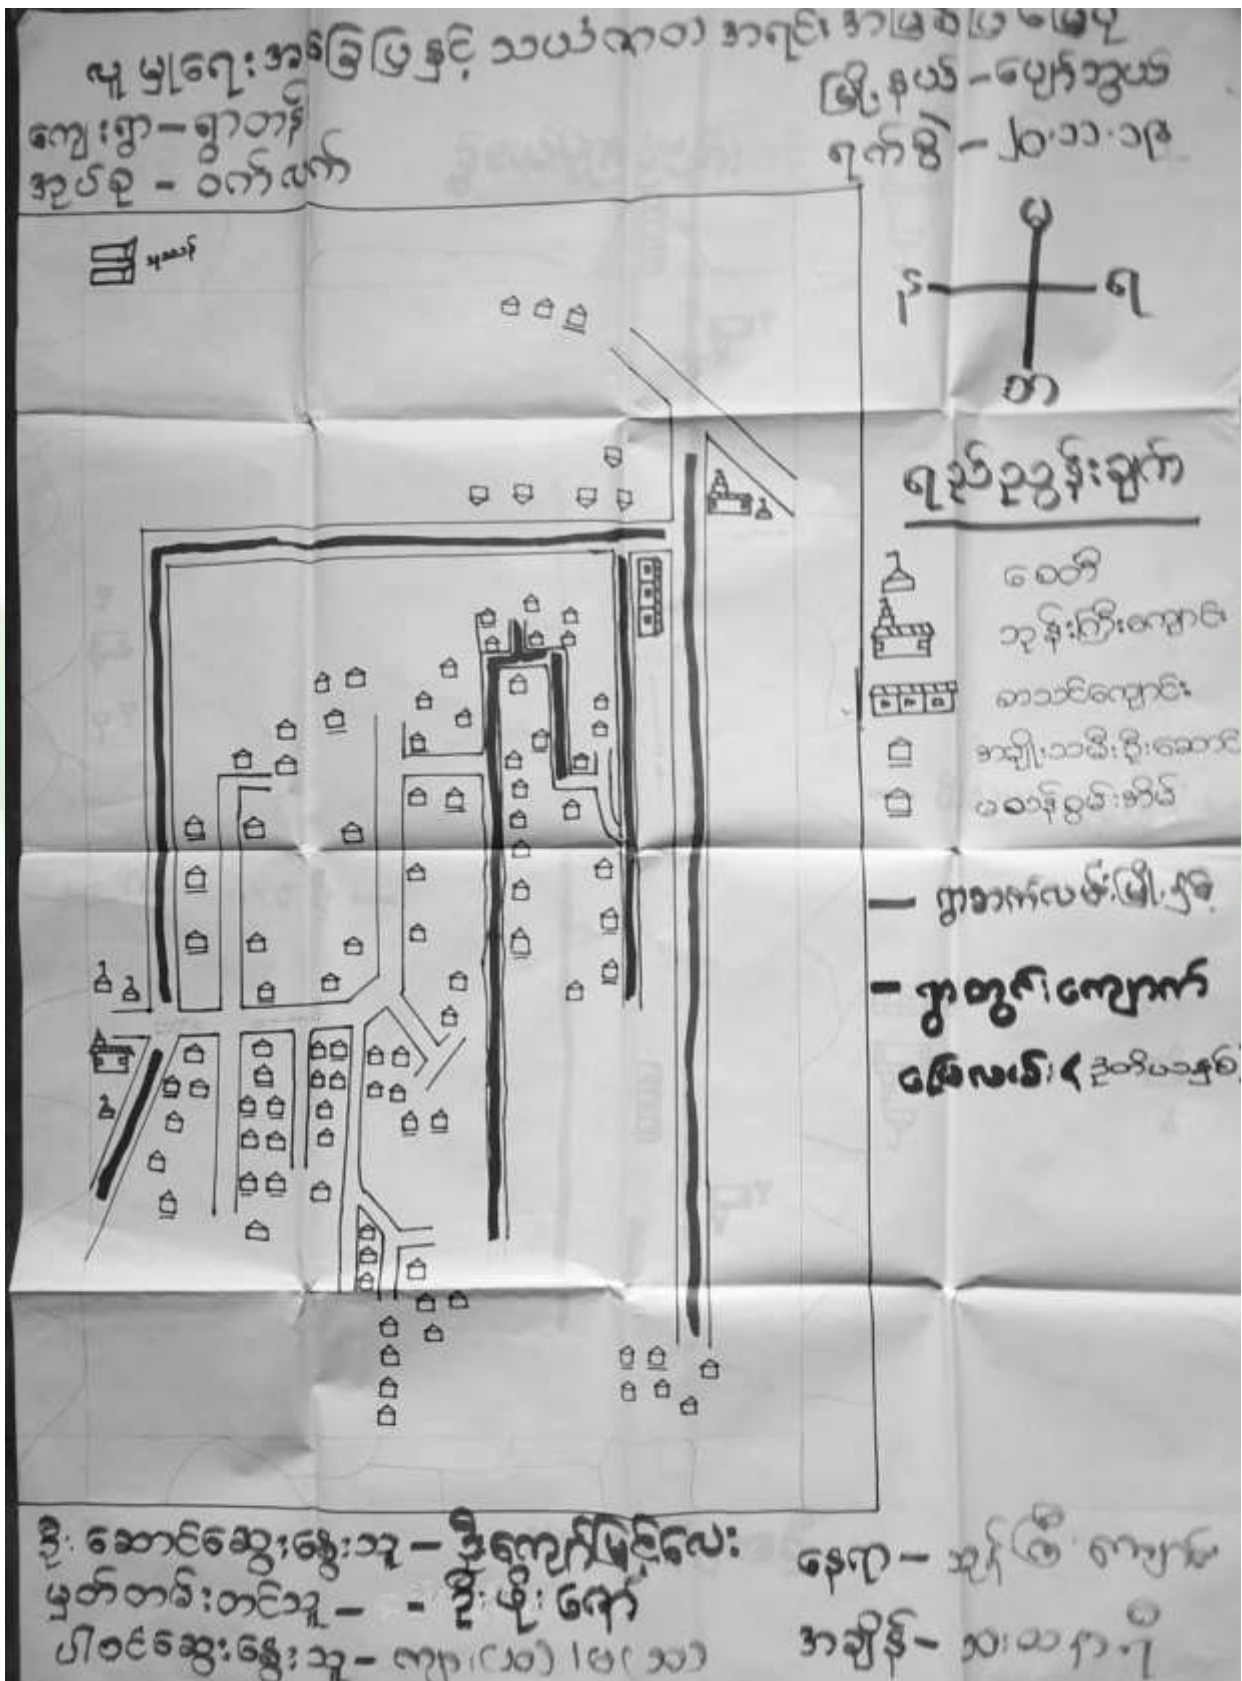 လူမှုရေးအခြေပြနှင့် သယံဇာတ အရင်းအမြစ်ပြ မြေပုံ
ကျေးရွာ - ရွာတန်
အုပ်စု - ဝက်လက်
မြို့နယ် - ပျော်ဘွယ်
ရက်စွဲ - ၂၀.၁၁.၁၉
မ
န
ရ
တ
ရည်ညွှန်းချက်
စေတီ
ဘုန်းကြီးကျောင်း
စာသင်ကျောင်း
အမျိုးသမီးဦးဆောင်
မသန်စွမ်းအိမ်
ကျောက်
မြေလမ်း
ဦးဆောင်ဆွေးနွေးသူ - ဦးကျော်မြင့်လေး
မှတ်တမ်းတင်သူ - - ဦးဖိုးဇော်
ပါဝင်ဆွေးနွေးသူ - ကျား(၂၀) မ(၁၁)
နေရာ - ဘုန်းကြီးကျောင်း
အချိန် -